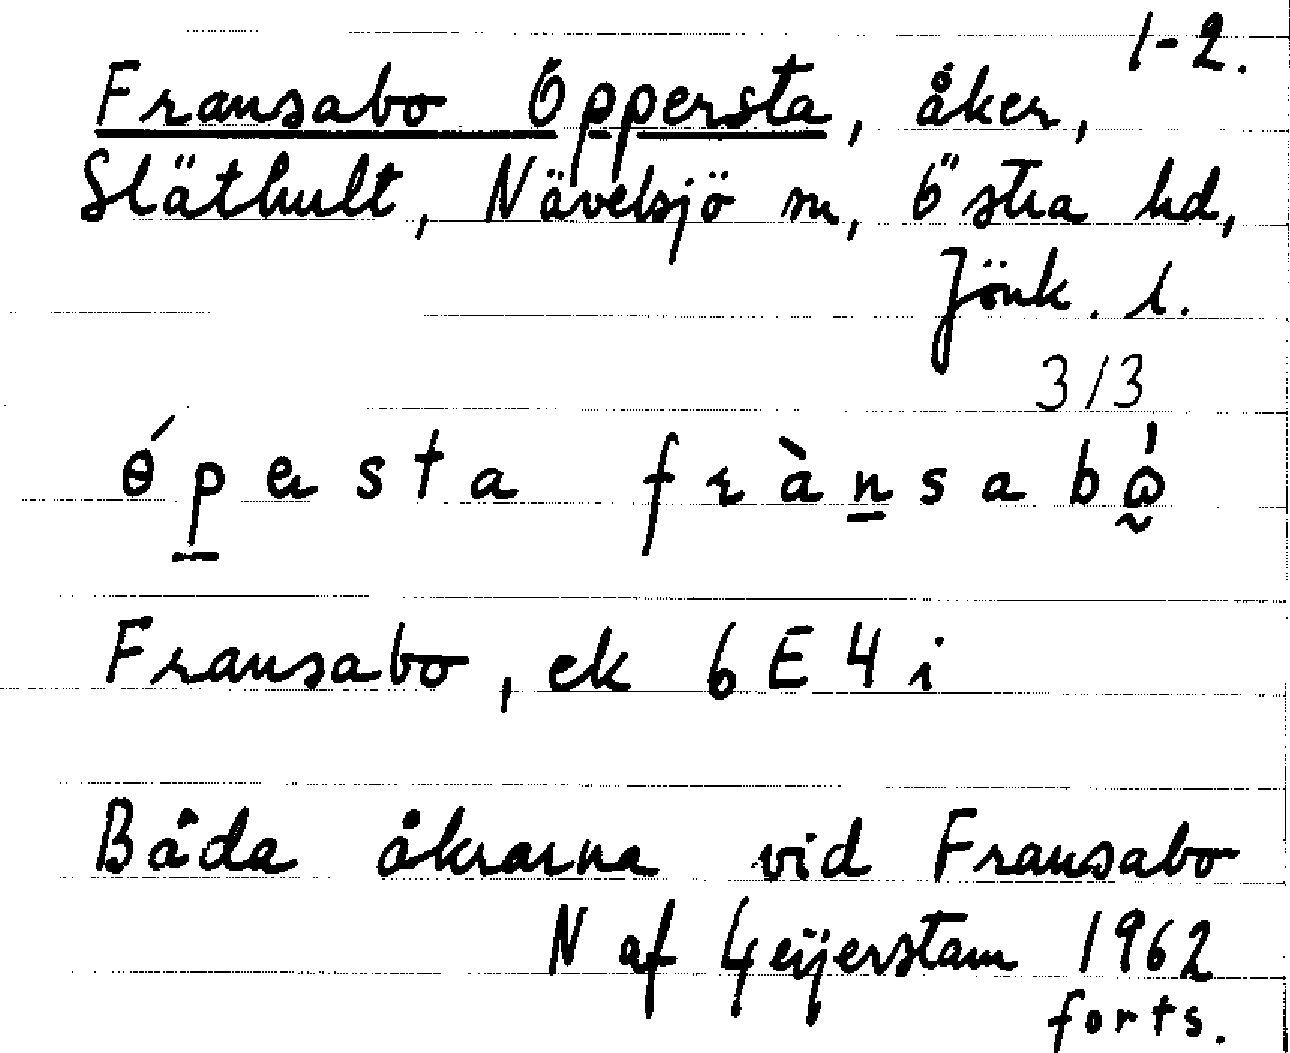 1-2.
Fransabo Öppersta, åker,
Släthult, Nävelsjö sn, Östra hd,
Jönk. l.
3/3
ɵ́p̲ersta fràn̲sabo̰̍
Fransabo, ek 6E4i
Båda åkrarna vid Fransabo
N af Geijerstam 1962
forts.